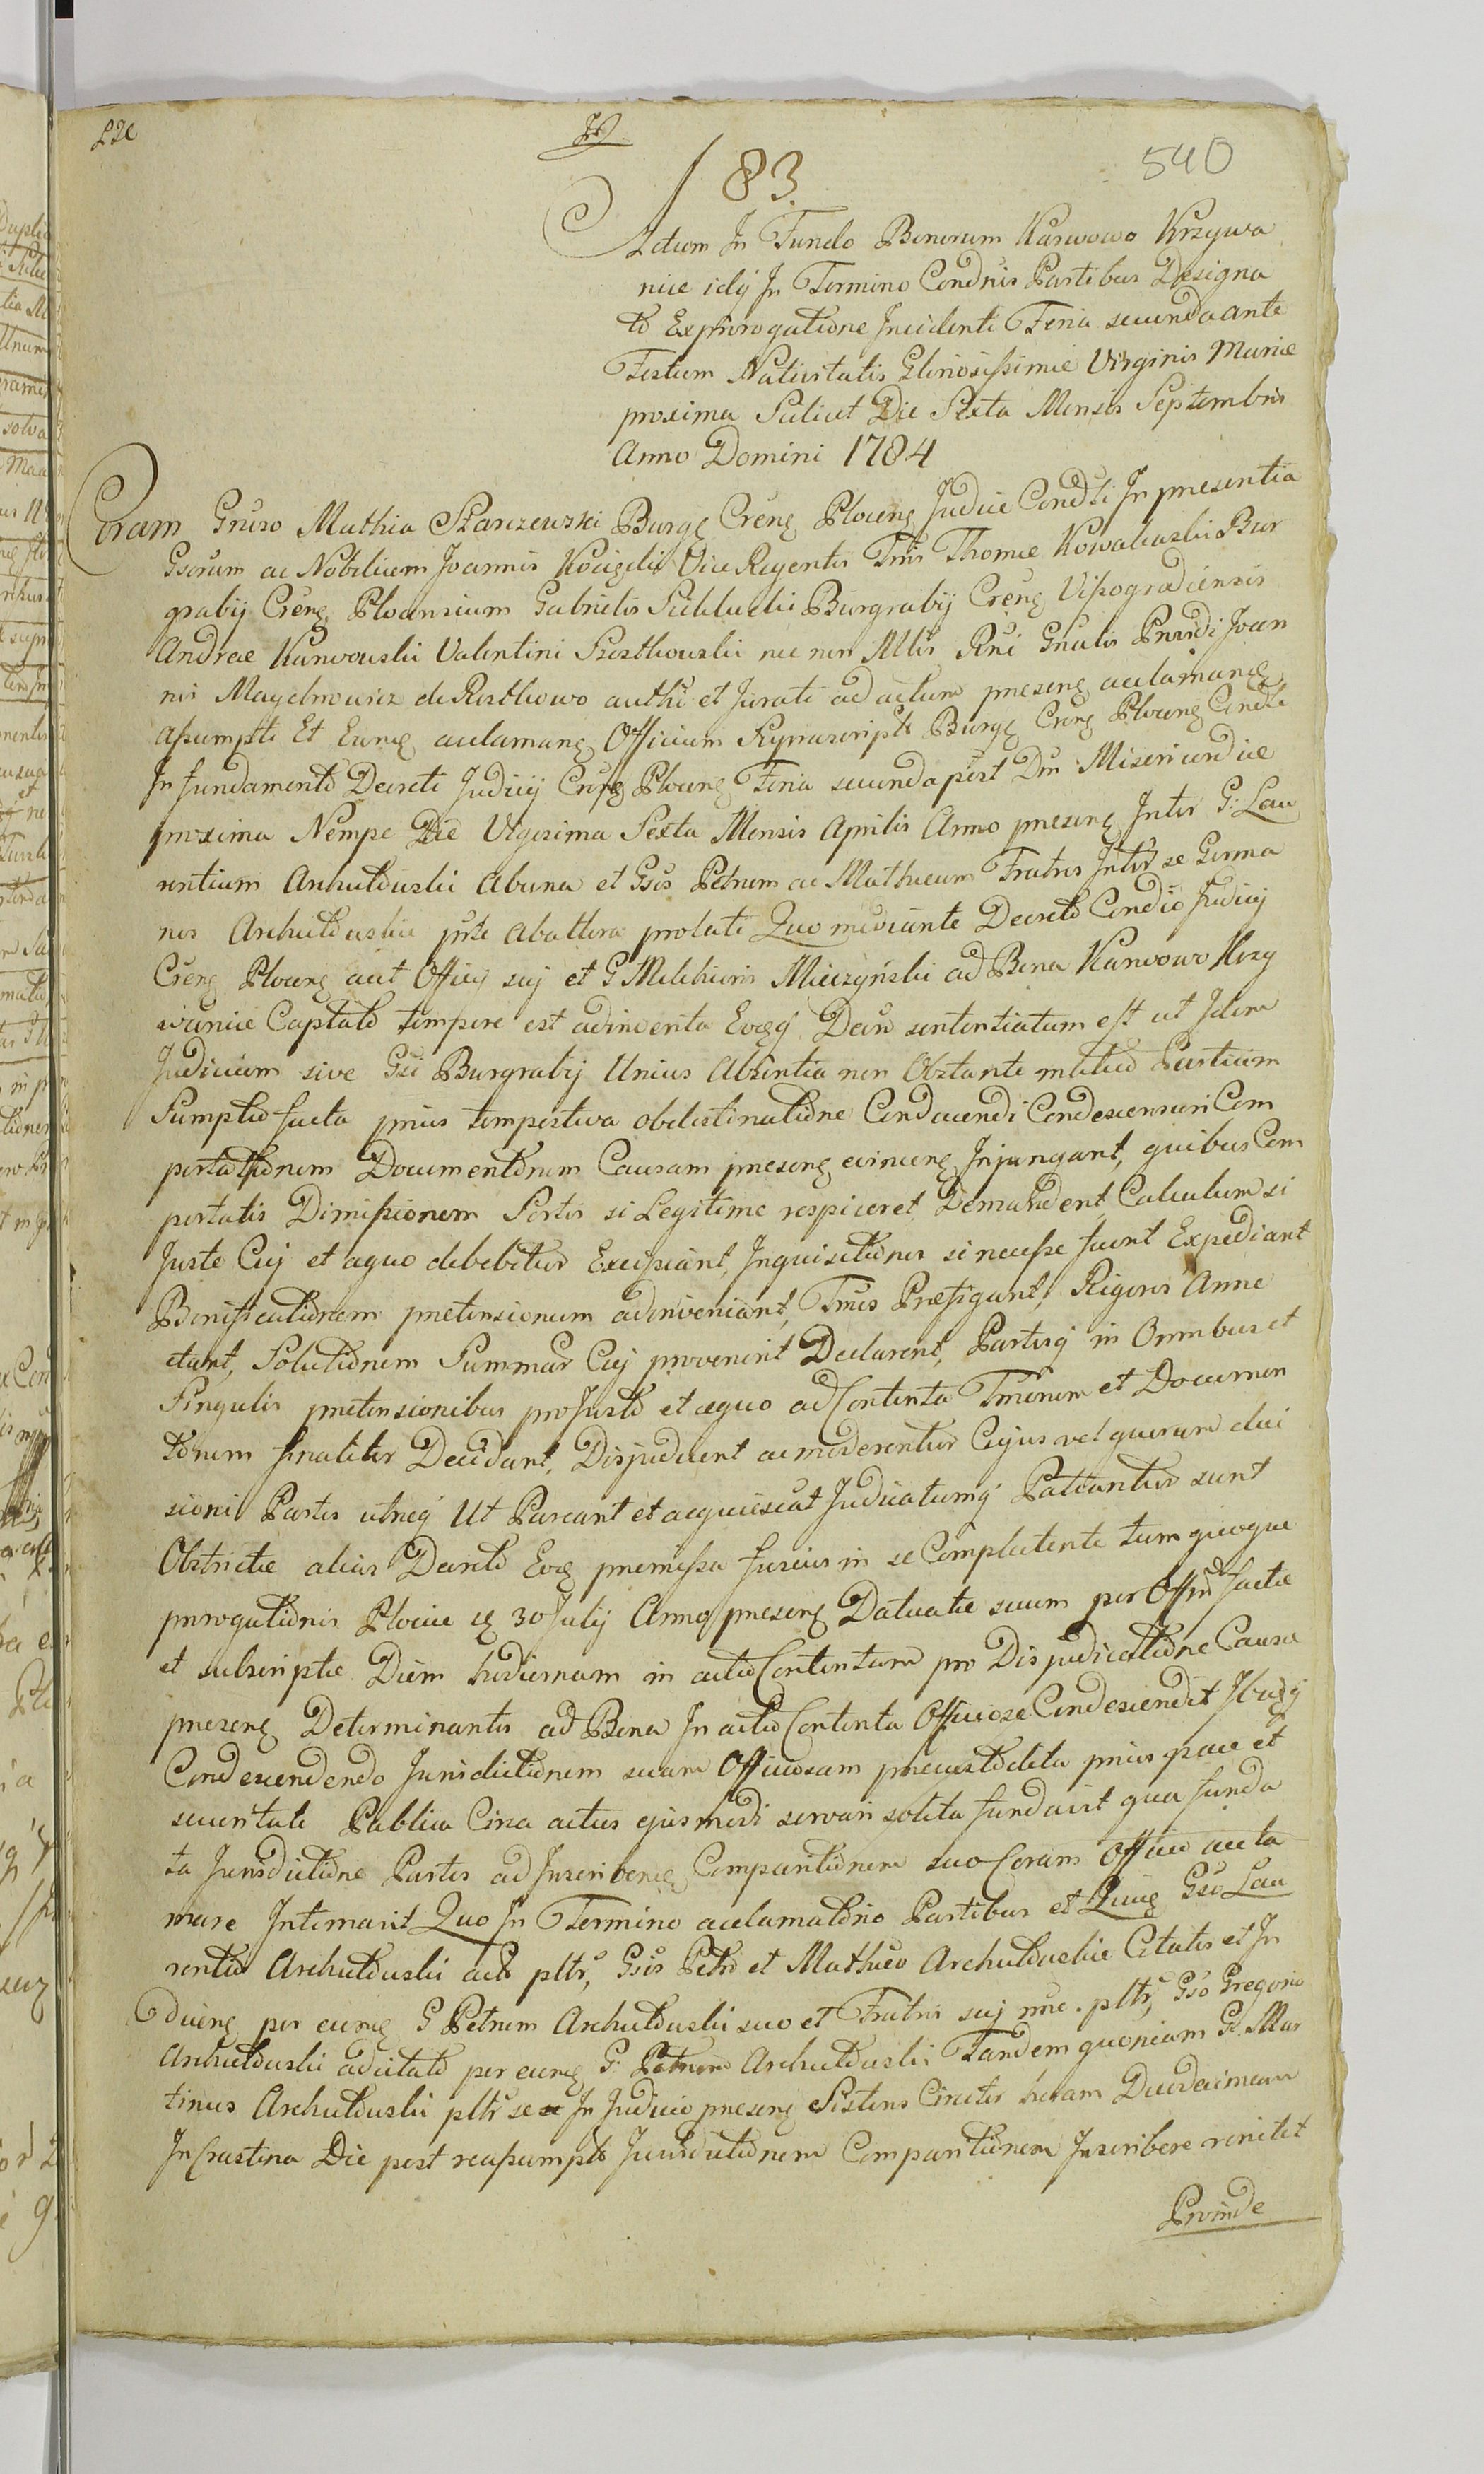 540
83.
Actum In Fundo Bonorum Karwowo Krzywa
nice idq In Termino Condnis Partibus Designa
to Exprorogatione Incidenti Feria secunda ante
Festum Nativitatis Gloriosissimae Virginis Mariae
proxima Scilicet Die Sexta Mensis Septembris
Anno Domini 1784
Coram Gnroso Mathia Starczewski Burgę Creng Ploceng Judice Condti In presentia
Gsorum ac Nobilium Joannis Vice Regentis Tmis Thomae Kowalewski Bur
grabij Creng Plocensium Gabrielis Burgrabij Creng Vissogradiensis
Andreae Karwowski Valentini Szostkowski nec non Mltis Rni Gnalis Prndi Joan
nis de Rostkowo authci et Jurati ad actum preseng acclamang
assumpti Et Eumg acclamang Officium Suprascripti Burgę Creng Ploceng Condti
In fundamento Decreti Judicij Creng Ploceng Feria secunda post Dni Misericordiae
proxima Nempe Die Vigesima Sexta Mensis Aprilis Anno preseng Inter G. Lau
rentium Archutowski Abuna et Gsos Petrum ac Mathaeum Fratres Inter se Germa
nos Archutowskie prte Abaltera prolati Quo mediante Decreto Condio Judicij
Creng Ploceng aut Officij suj et G Melchioris Mieczyński ad Bona Karwowo Krzy
wanice Captato tempore est adinventa Eoqg Decro sententiatum est ut Idem
Judicium sive Gsi Burgrabij Unius Absentia non Obstante mutuo Partium
Sumptu facta prius tempestiva obdestinatione Conducendi Condescensuri Com
portationem Documentorum Causam preseng evinceng Injungant, quibus Com
portatis Dimissionem Sortis si Legitime respiceret Demandent Calculum si
Juste Cuj et aquo debebitur Excipiant, Inquisitiones si necesse fuerit Expediant
Bonificationem pretensionum adinveniant, Tmos Praefigant, Rigores Anne
ctant, Solutionem Summar Cuj provenerit Declarent, Partesq in Omnibus et
Singulis pretensionibus pro Justo et aequo ad Contenta Tmorum et Documen
torum finaliter Decidant, Disjudicent ac moderentur Cujus vel quarum deci
sioni Partes utraeq Ut Pareant et acquiescat Judicatumq Patiantur sunt
Obstrictae alias Decreto Eoq premissa fusius in se Complectente tum quoque
prorogationis Plociae 30 Julij Anno preseng Datuatae suum per Offm factae
et subscriptae Diem hodiernum in actu Contentum pro Disjudicatione Causae
preseng Determinantis ad Bona In actu Contenta Officiose Condescendit Ibidq
Condescendendo Jurisdictionem suam Officiosam precustodita prius pace et
securitate Publica Circa actus ejusmodi servari solita fundavit qua funda
ta Jurisdictione Partes ad Inscribeng Comparitionem suo Coram Officio accla
mare Intimavit Quo In Termino acclamatorio Partibus et Quing Gso Lau
rentio Archutowski acto pltr, Gsis Petro et Mathaeo Archutowskie Citatis et In
duceng per eumg G Petrum Archutowski suo et Fratris suj nne. pltr, Gso Gregorio
Archutowski adcitato per eumg G: Petrum Archutowski Tandem quoniam G. Mar
tinus Archutowski pltr se In Judicio preseng Sistens Circiter horam Duodecimam
In Crastina Die post reassumpto Jurisdictionem Comparitionem Inscribere renitet
Proinde